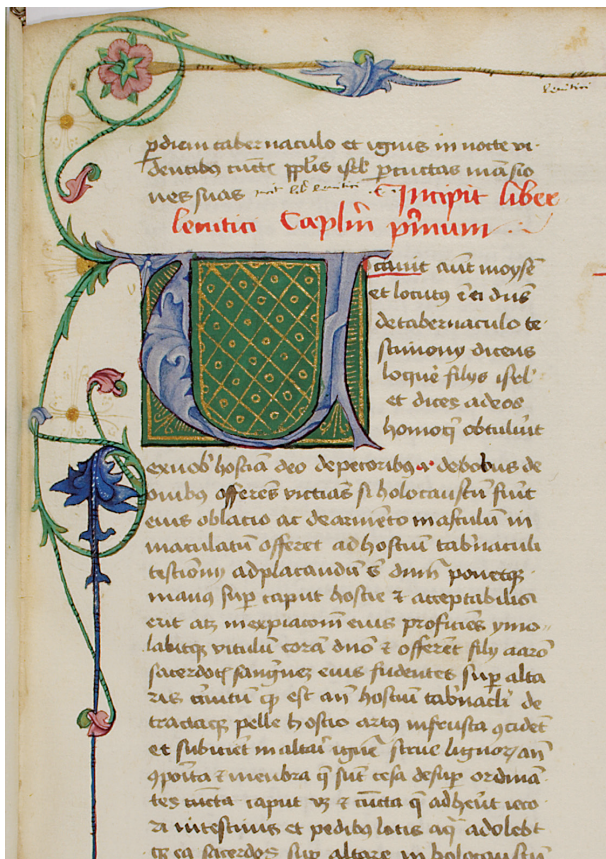 leuitici
p diem tabernaculo et ignis in nocte vi-
dentibꝯ cūctꝭ ppl̄is isrl̄ p cūctas māsio
nes suas Incipit liber
leuitici Caplm̄ pⁱmum
Vocauit aūt moysē
et locutꝯ ē ei dn̄s
de tabernaculo te-
stimony dicens
loque filijs isrl̄
et dices ad eos
homo qⁱ obtulīt
ex uob̄ hostiā deo de pecoribꝯ ⁊ de bobus de
ouibꝯ offeres victīas si holocaustū fūīt
eius oblacio ac de armēto masculū in
maculatū offeret ad hostiū tab̄naculi
testīony ad placandū s̄ dn̄m ponetqꝫ
manꝯ sup caput hostie ⁊ acceptabilis
erit atqꝫ in expiacōnī eius proficiēs ymo-
labitqꝫ vitulū corā dn̄o ⁊ offerēt filij aarō
sacerdotꝭ sanguinē eius fūdentes sup alta
ris cⁱcuitū qd̄ est añ hostiū tab̄nacl̄i de
tractaqꝫ pelle hostie artꝯ in frusta ꝯcidēt
et subicient in altari ignē strue lignoꝝ añ
ꝯpoīta ⁊ menbra q̄ sūt cesa desup ordinā-
tes cūcta caput vꝫ ⁊ cūcta q̄ adherent ieco-
ri intestinis et pedibꝯ lotis aqͣ adolebt
qꝫ ea sacerdos sup altare in holocaustū